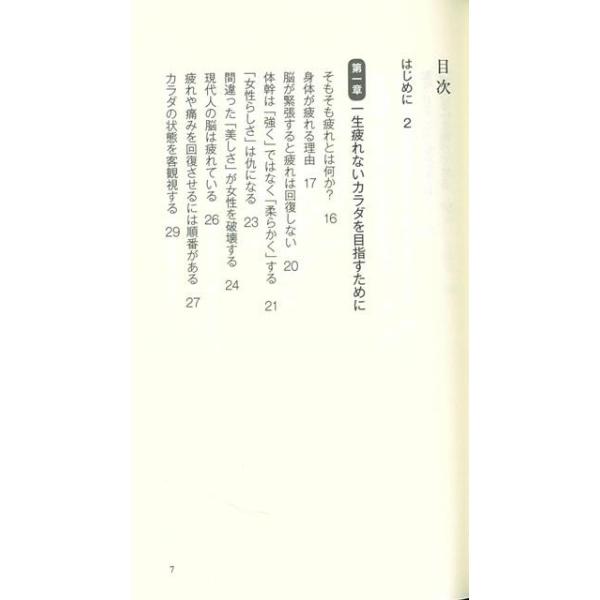 目次
はじめに 2
第一章 一生疲れないカラダを目指すために
そもそも疲れとは何か? 16
身体が疲れる理由 17
脳が緊張すると疲れは回復しない 20
体幹は「強く」ではなく「柔らかく」する 21
「女性らしさ」は仇になる 23
間違った「美しさ」が女性を破壊する 24
現代人の脳は疲れている 26
疲れや痛みを回復させるには順番がある 27
カラダの状態を客観視する 29
7